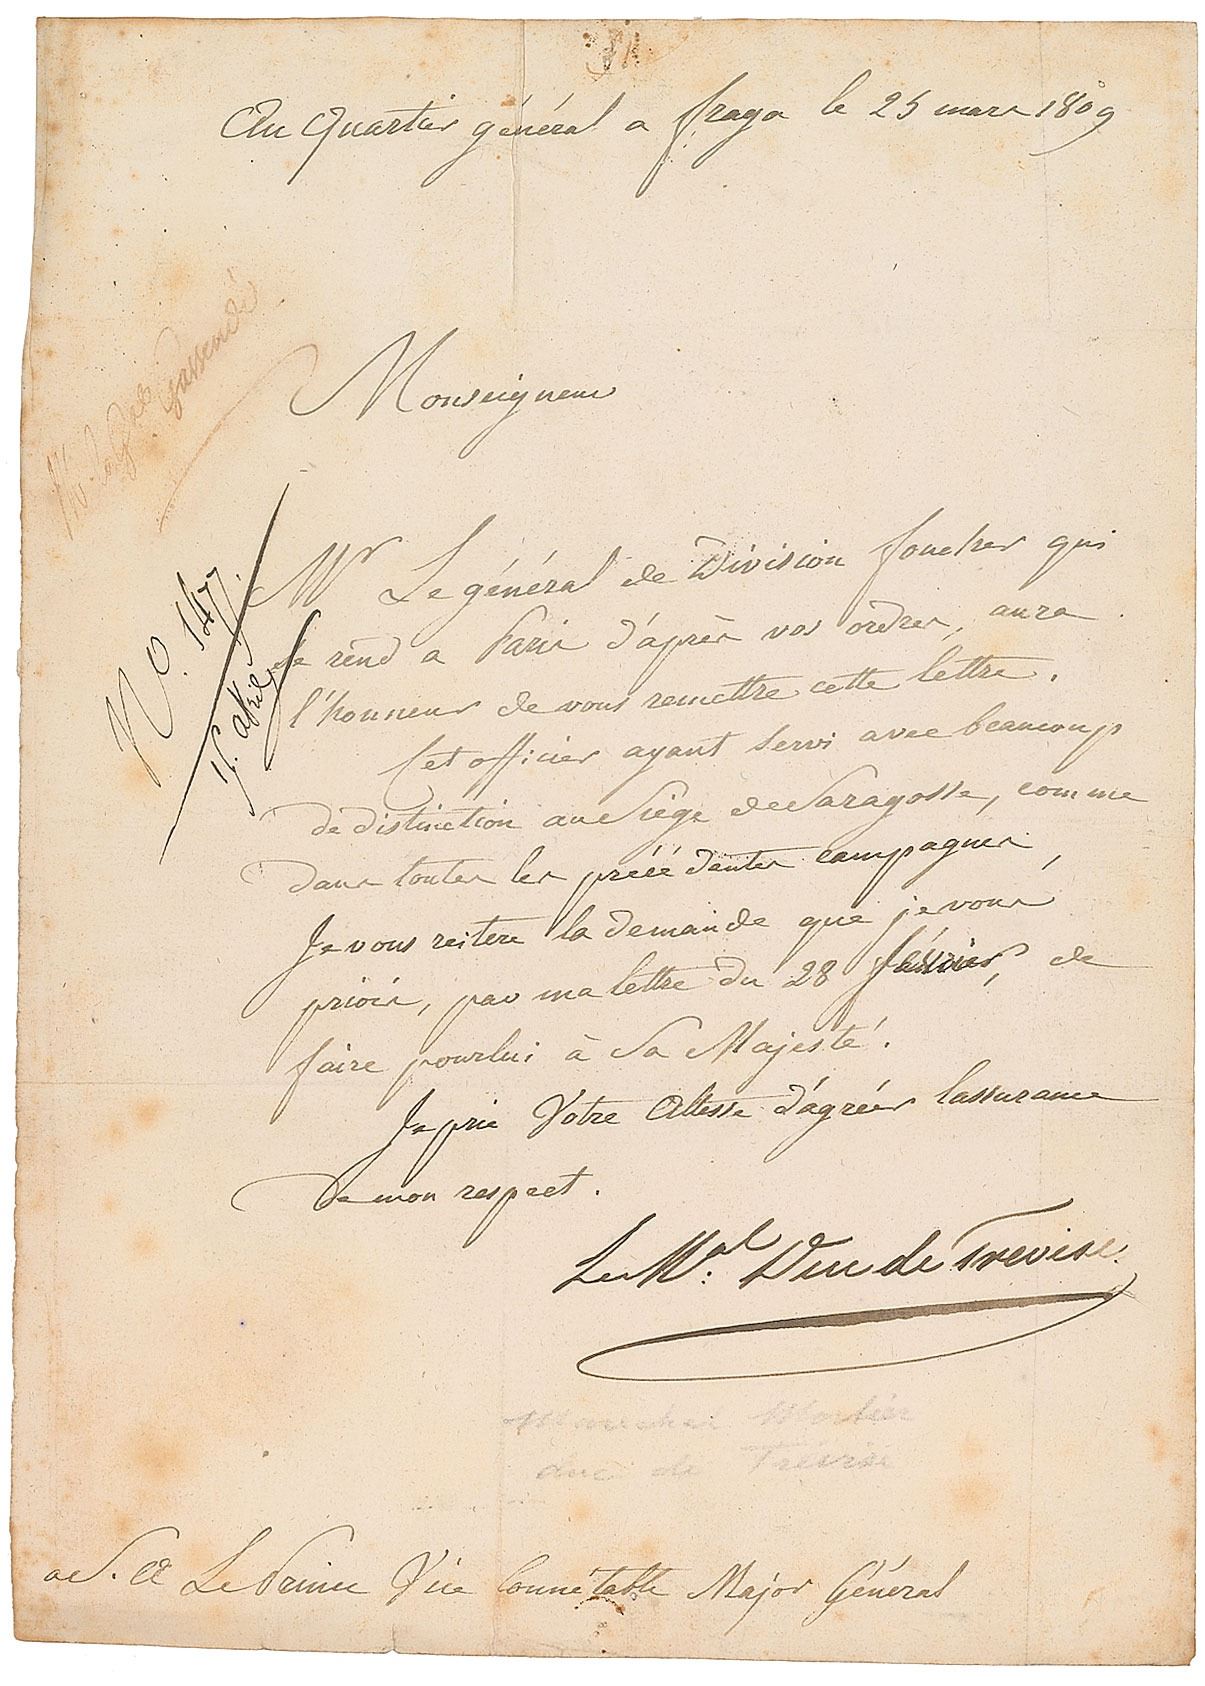 Au Quartier général a fraga le 25 mars 1809
Monseigneur
Gassendi
No. 1477.
15. avril
Mr Le général de Division foucher qui
se rend a Paris d'après vos ordres, aura
l'honneur de vous remettre cette lettre.
Cet officier ayant servi avec beaucoup
de distinction au Siége de Saragosse, comme
dans toutes les précédentes campagnes,
Je vous reitere la demande que je vous
priois, par ma lettre du 28 février, de
faire pour lui à Sa Majesté.
Je prie Votre Altesse d'agréer lassurance
de mon respect.
Le Mal: Duc de Trevise.
Marechal Mortier
duc de Trévise
a S. A Le Prince Vice Connétable Major Général